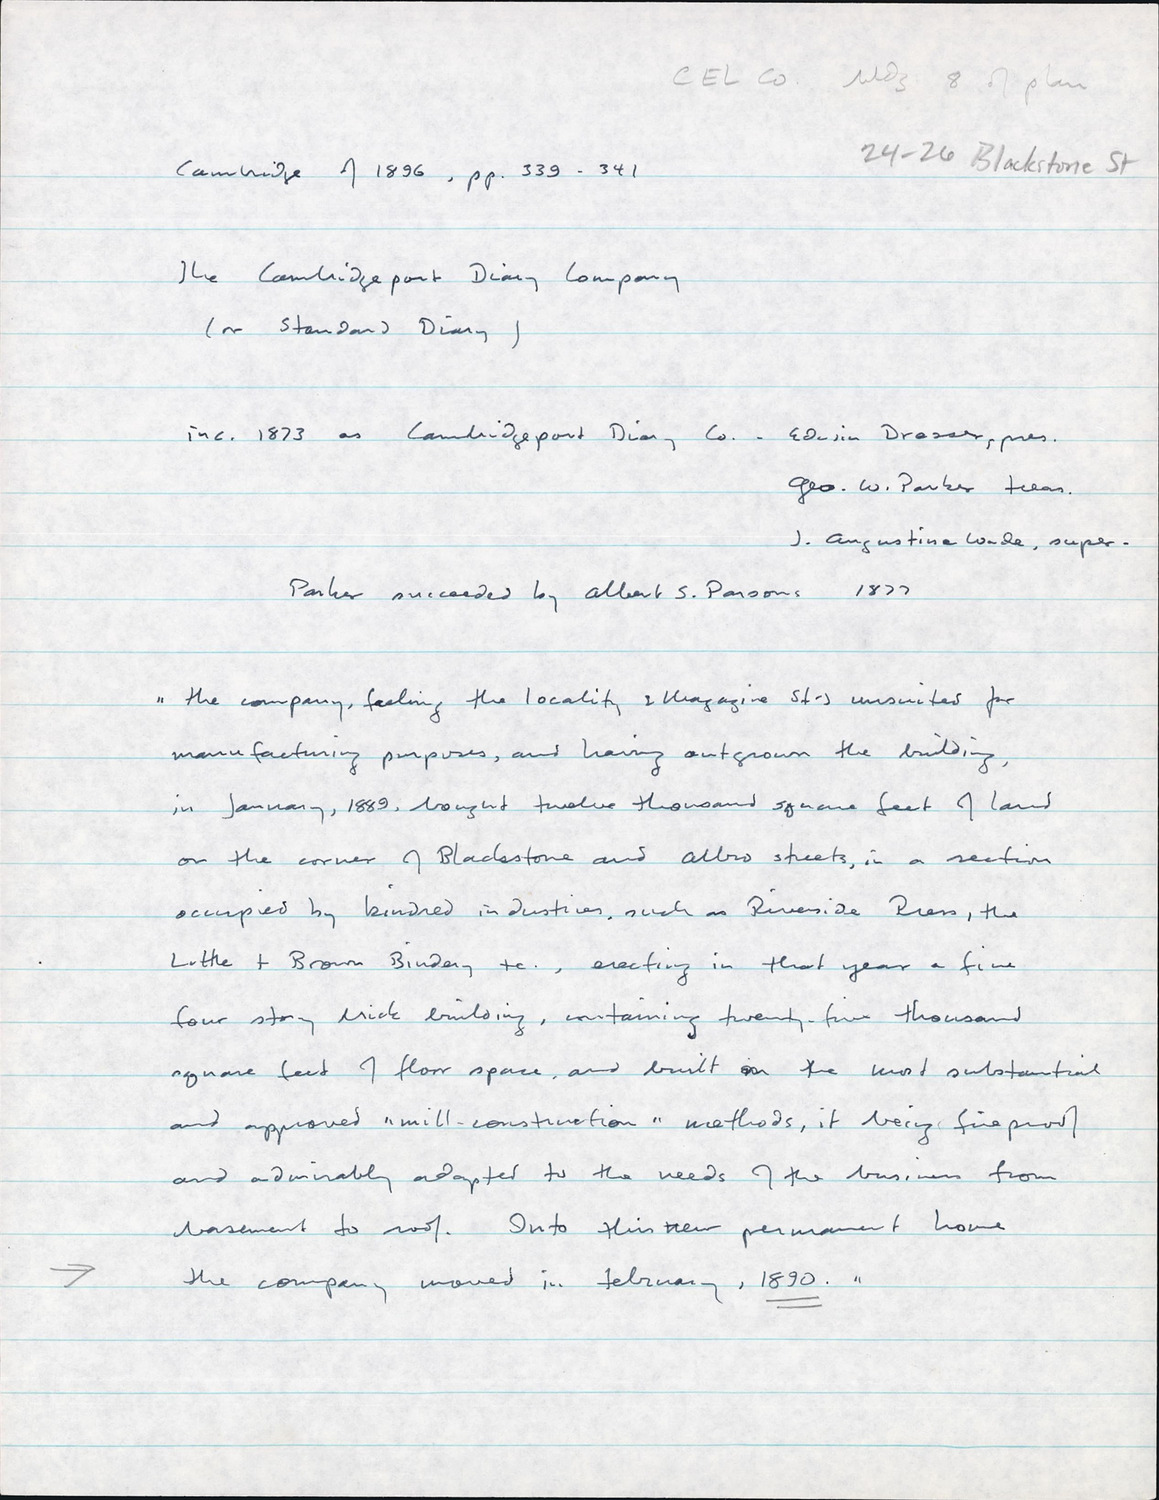 CEL Co. bldg 8 of plan
24-26 Blackstone St
Cambridge of 1896, pp. 339 - 341
The Cambridgeport Diary Company
(or Standard Diary)
inc. 1873 as Cambridgeport Diary Co. - Edwin Dresser, pres.
Geo. W. Parker treas.
J. Augustine Wade, super.
Parker succeeded by Albert S. Parsons 1877
" the company, feeling the locality [Magazine St.] unsuited for
manufacturing purposes, and having outgrown the building,
in January, 1889, bought twelve thousand square feet of land
on the corner of Blackstone and Albro streets, in a section
occupied by kindred industries, such as Riverside Press, the
Little + Brown Bindery +c., erecting in that year a fine
four story brick building, containing twenty-five thousand
square feet of floor space, and built in the most substantial
and approved "mill-construction" methods, it being fireproof
and admirably adapted to the needs of the business from
basement to roof. Into this new permanent home
→ the company moved in February, 1890. "